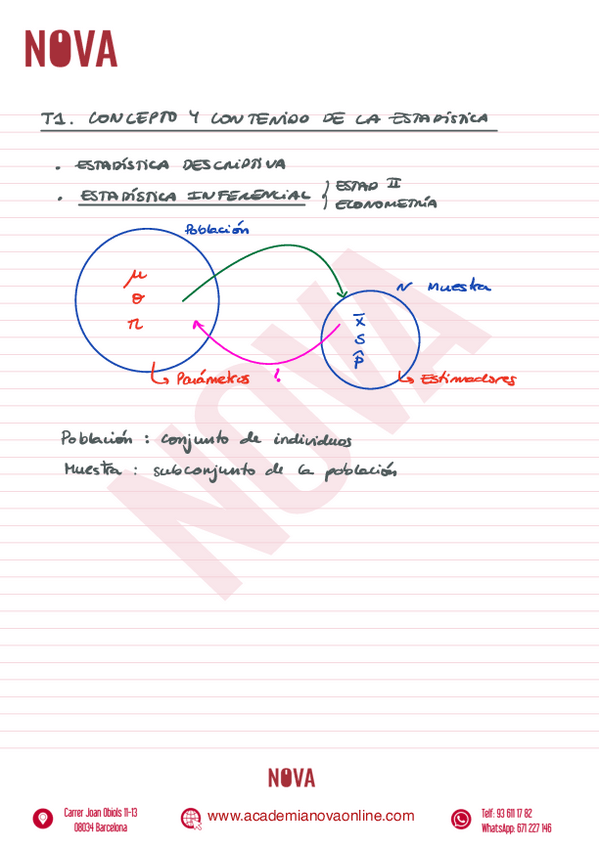 NOVA
T1. CONCEPTO Y CONTENIDO DE LA ESTADÍSTICA
• ESTADÍSTICA DESCRIPTIVA
• ESTADÍSTICA INFERENCIAL { ESTAD II
ECONOMETRÍA
Población
μ
σ
π
N Muestra
x̄
S
p̂
↳ Parámetros
?
↳ Estimadores
Población : conjunto de individuos
Muestra : subconjunto de la población
NOVA
NOVA
Carrer Joan Obiols 11-13
08034 Barcelona
www.academianovaonline.com
Telf: 93 611 17 82
WhatsApp: 671 227 146